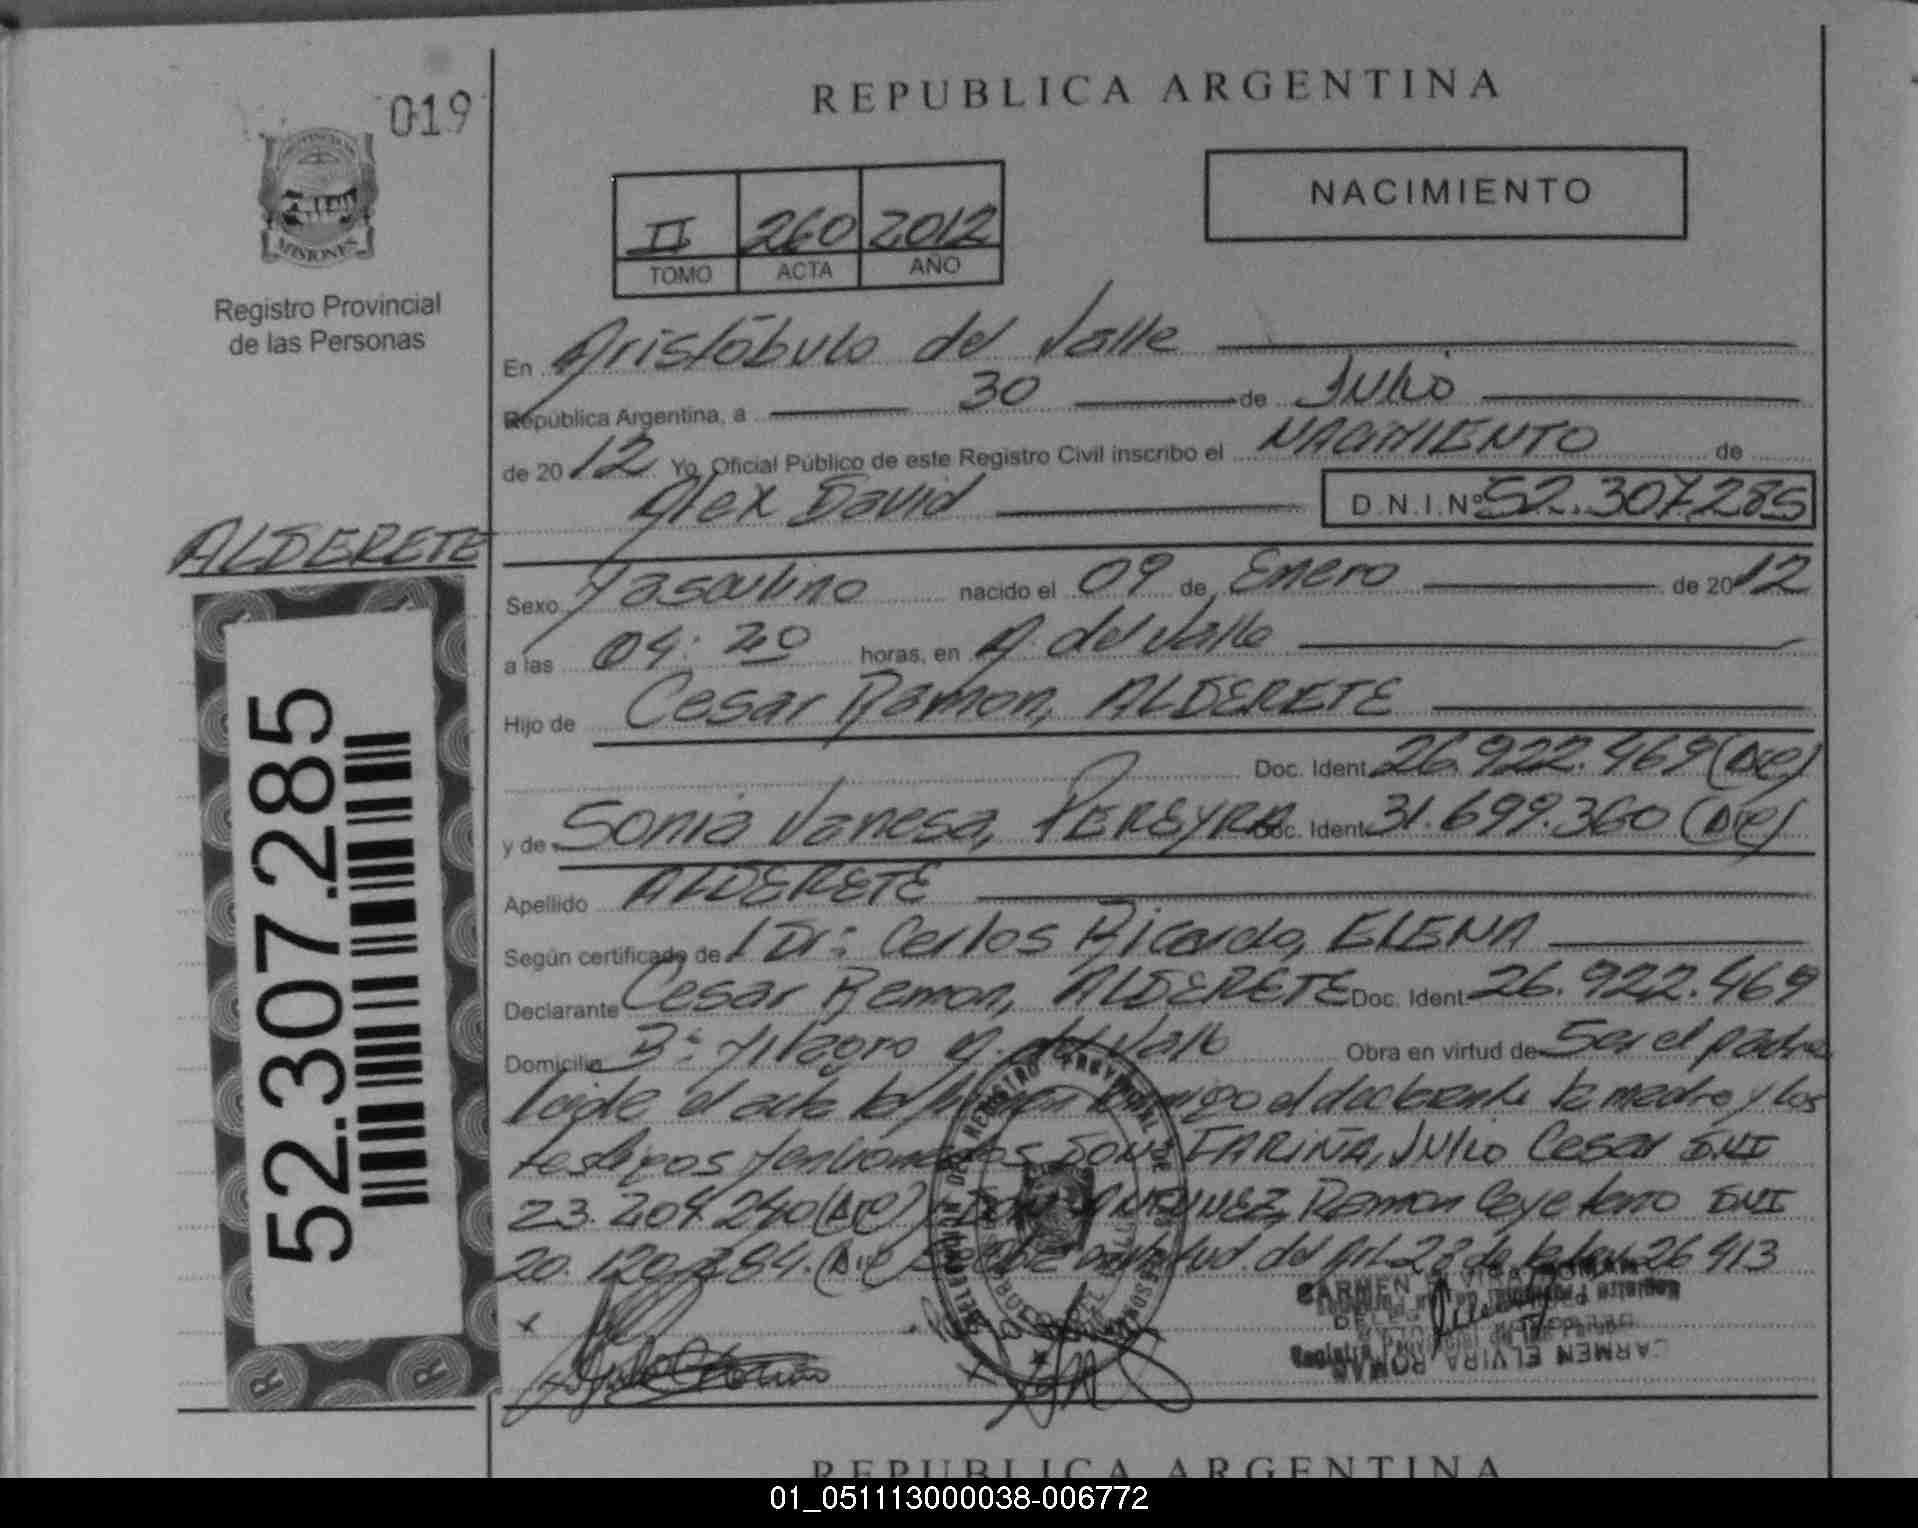 019
MISIONES
Registro Provincial
de las Personas
ALDERETE
52.307.285
REPUBLICA ARGENTINA
NACIMIENTO
II 260 2012
TOMO ACTA AÑO
En Aristóbulo del Valle
República Argentina, a 30 de Julio
de 2012 Yo, Oficial Público de este Registro Civil inscribo el NACIMIENTO de
Alex David D.N.I.Nº 52.307.285
Sexo Masculino nacido el 09 de Enero de 2012
a las 04:20 horas, en A. del Valle
Hijo de Cesar Ramon, ALDERETE
Doc. Ident. 26.922.469 (DIC)
y de Sonia Vanesa, PEREYRA Doc. Ident. 31.699.360 (DIC)
Apellido ALDERETE
Según certificado de / Dr: Carlos Ricardo, ELENA
Declarante Cesar Ramon, ALDERETE Doc. Ident. 26.922.469
Domicilio Bº Milagro A. del Valle Obra en virtud de Ser el padre
Leida el acta la firman conmigo el declarante la madre y los
testigos mencionados Don: FARIÑA, Julio Cesar DNI
23.204.240 (DIC) Ramon Cayetano DNI
20.120.284. (DIC) del Art. 28 de la ley 26 413
CARMEN ELVIRA ROMAN
REPUBLICA ARGENTINA
01_051113000038-006772